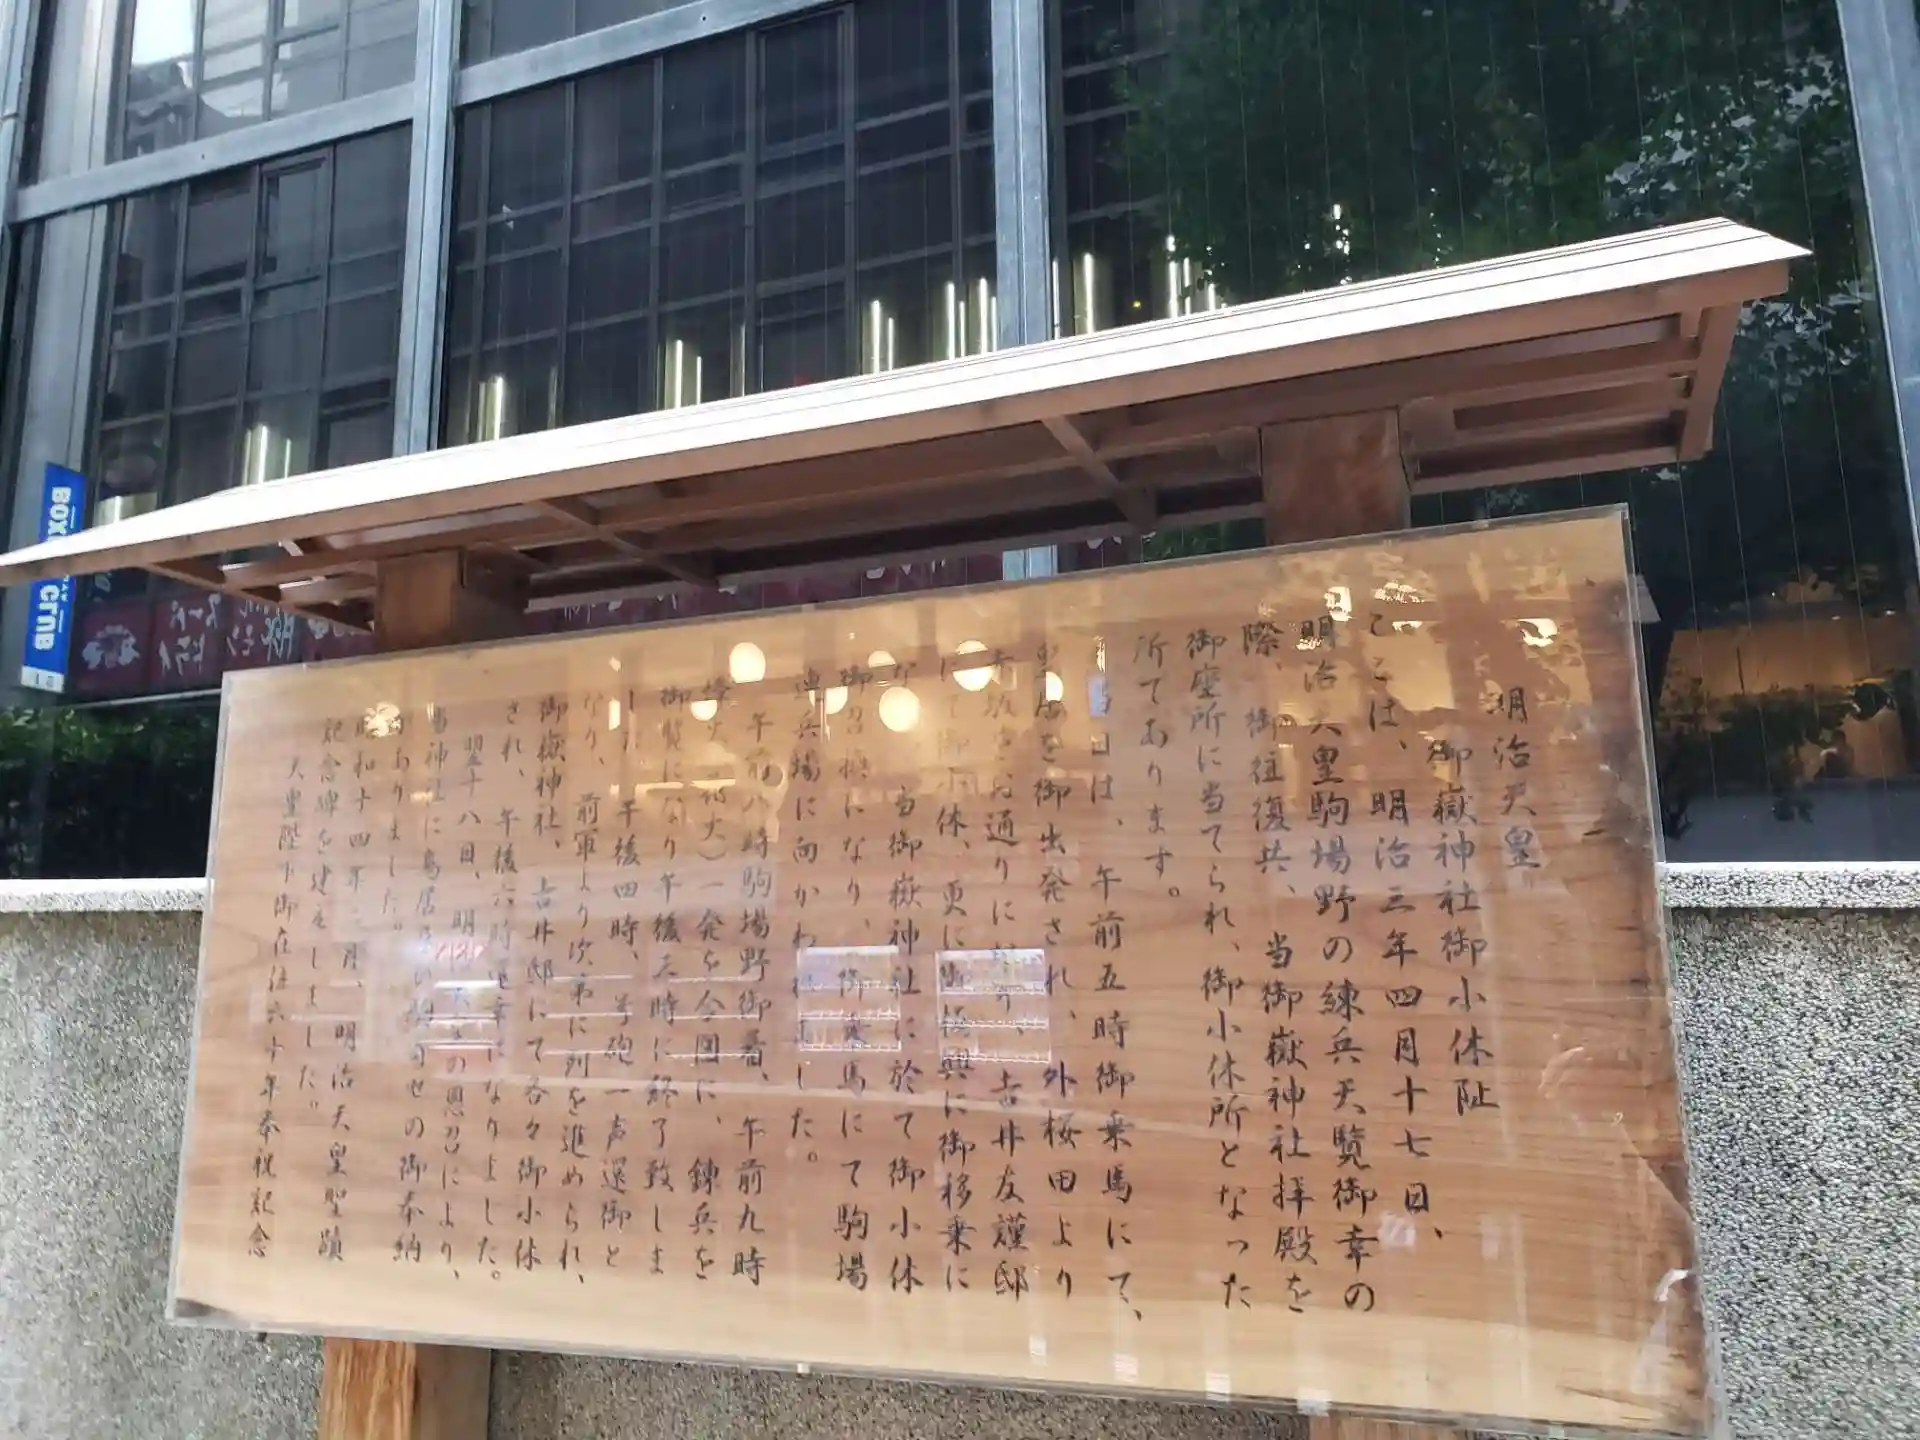 明治天皇
御嶽神社御小休阯
ここは、明治三年四月十七日、
明治天皇駒場野の練兵天覧御幸の
際、御往復共、当御嶽神社拝殿を
御座所に当てられ、御小休所となった
所であります。
当日は、午前五時御乗馬にて、
を御出発され、外桜田より
お通りに 吉井友謹邸
にて御小休、更に御板輿に御移乗に
当御嶽神社に於て御小休
になり、御乗馬にて駒場
練兵場に向かわ ました。
午前八時駒場野御着、午前九時
烽火 一発を合図に、錬兵を
御覧になり午後三時に終了致しま
した 午後四時、号砲一声還御と
なり、前軍より次第に列を進められ、
御嶽神社、吉井邸にて各々御小休
され、午後六時還幸になりました。
翌十八日、明治天皇の思召により、
当神社に鳥居 せの御奉納
がありました。
昭和十四年三月、明治天皇聖蹟
記念碑を建立しました。
天皇陛下御在位六十年奉祝記念
BOX
CLUB